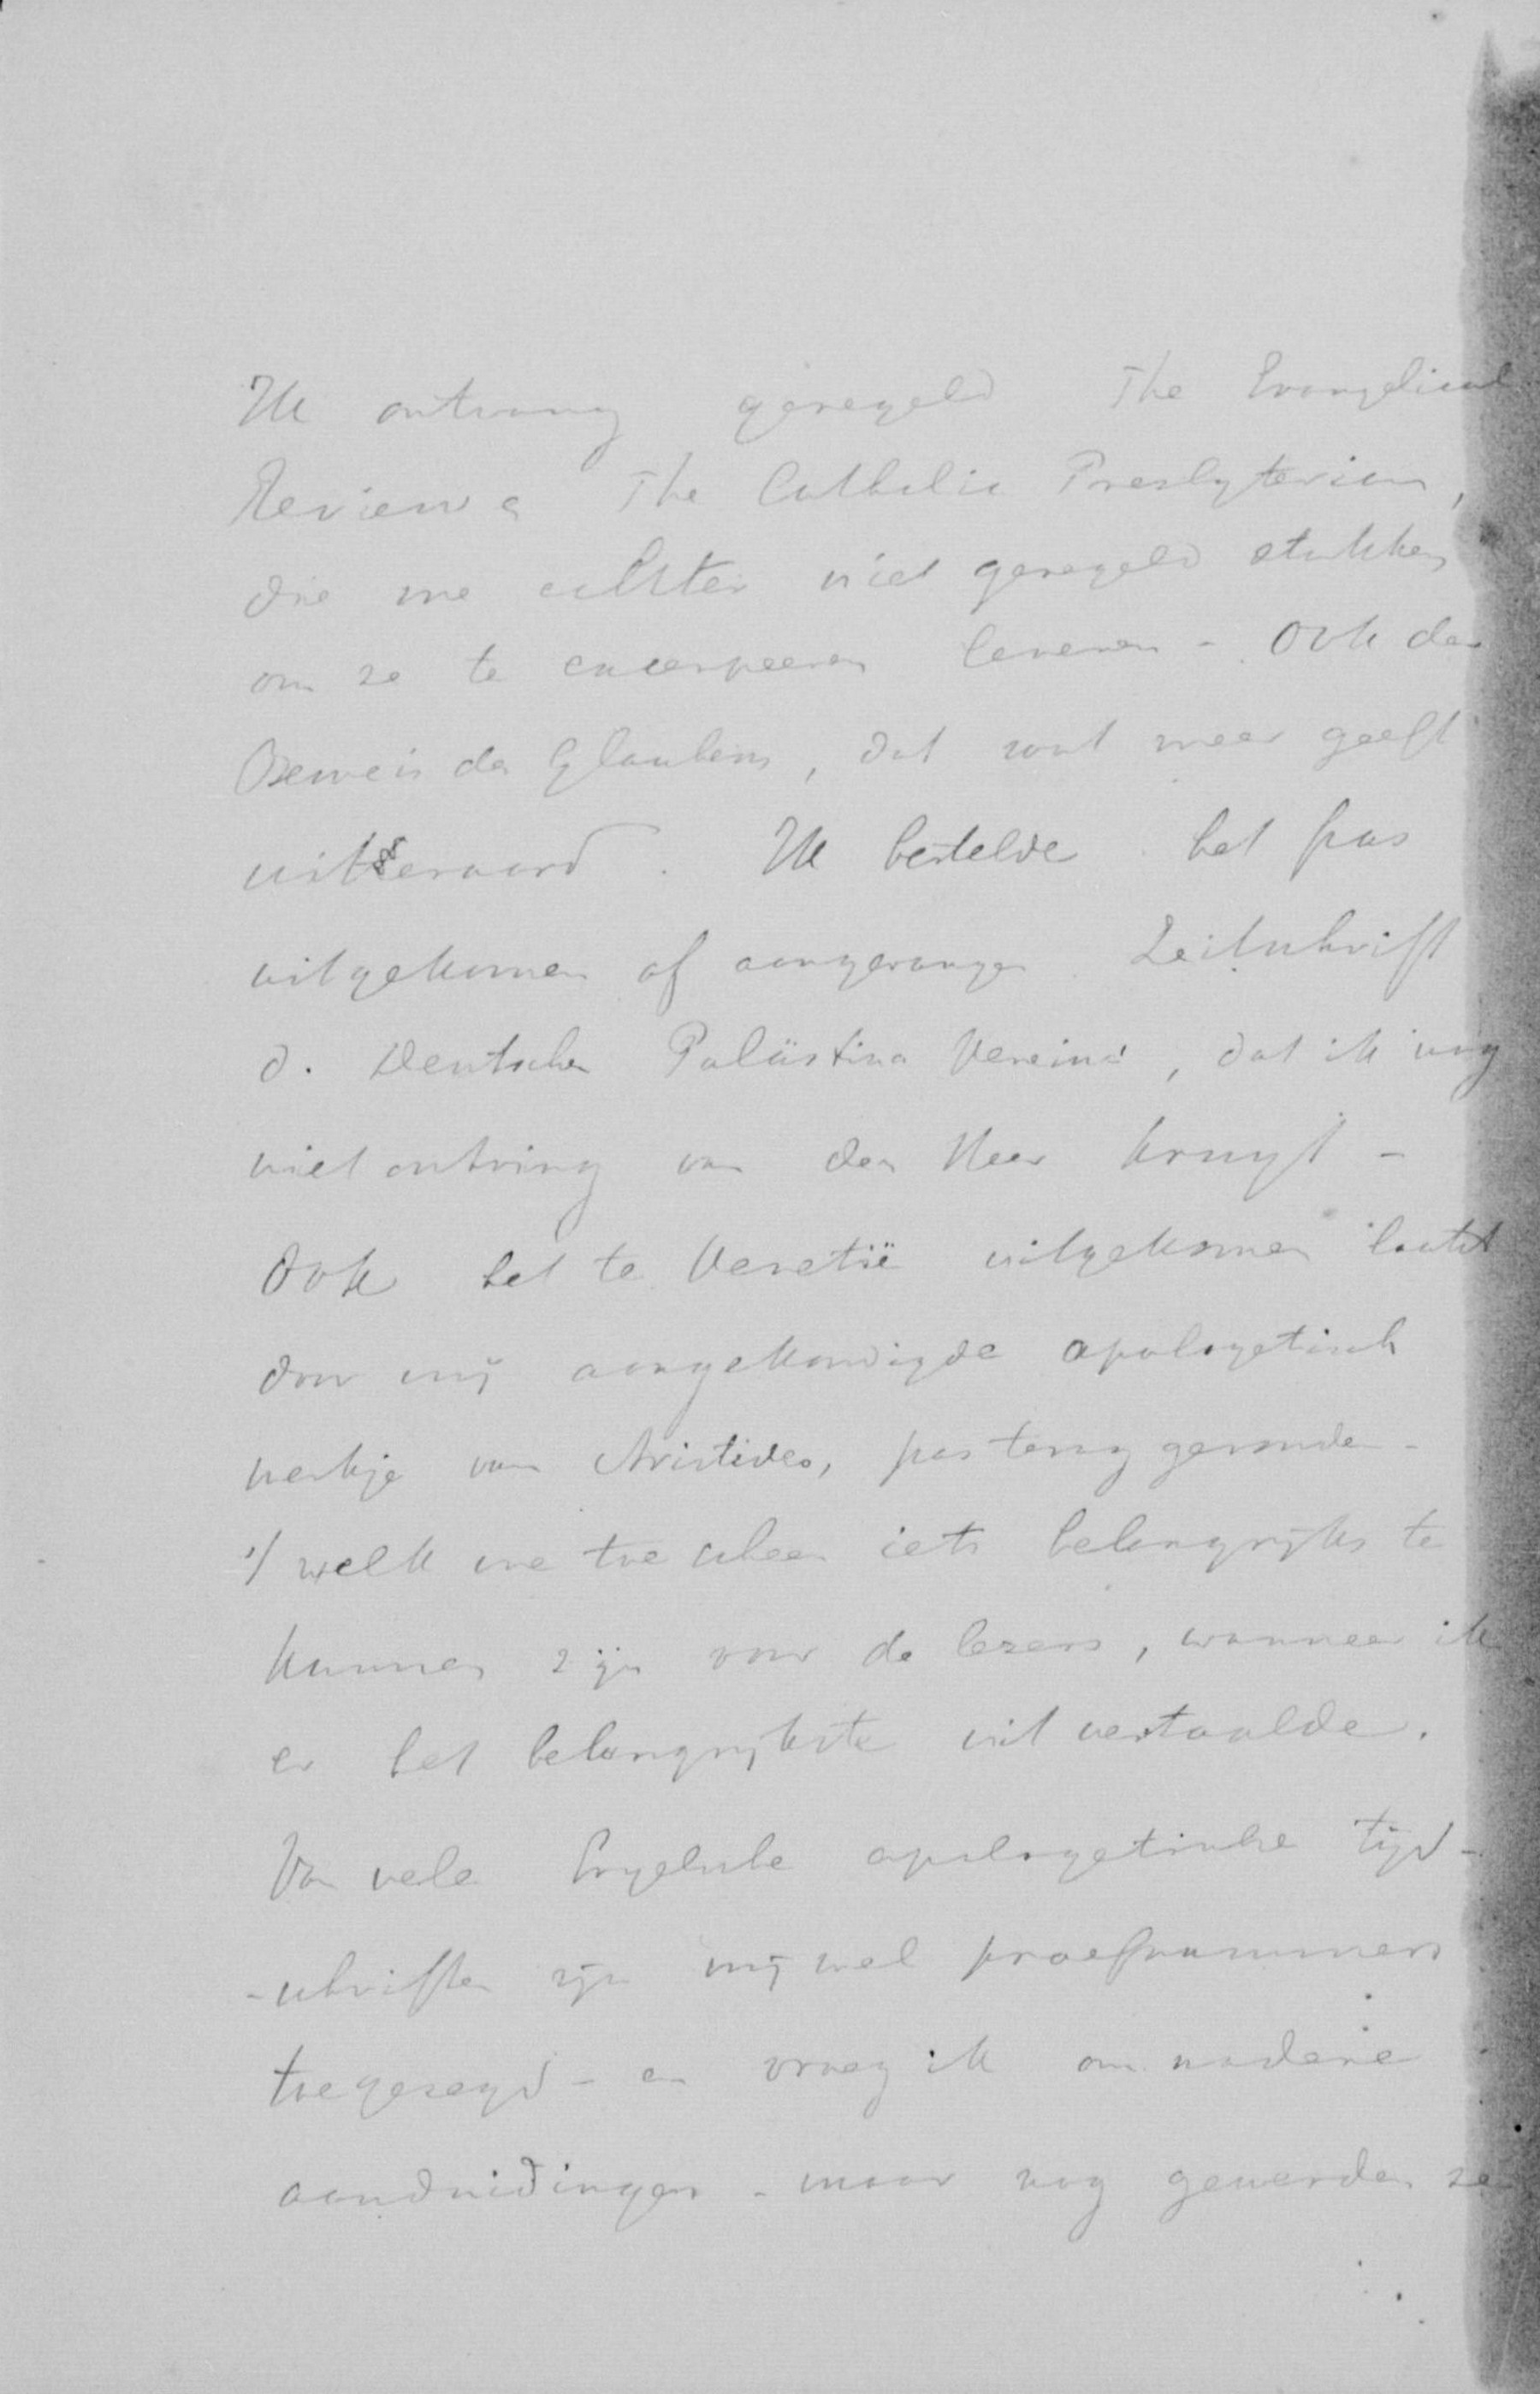 Ik ontvang geregeld The Evangelical
Review & The Catholic Presbyterian,
die me echter niet geregeld stukken
om ze te excerpeeren leveren - Ook den
Beweis des Glaubens, dat wat meer geeft
uitteraard. Ik bestelde het pas
uitgekomen of aangevangen Zeitschrift
d. Deutschen Palästina Vereins, dat ik nog
niet ontving van den Heer Kruyt -
Ook het te Venetië uitgekomen laatst
door mij aangekondigde apologetisch
werkje van Aristides, pas terug gevonden -
't welk me toescheen iets belangrijks te
kunnen zijn voor de lezers, wanneer ik
er het belangrijkste uit vertaalde.
Van vele Engelsche apologetische tijd-
-schriften zijn mij wel proefnummers
toegezegd - en vroeg ik om nadere
aanduidingen - maar nog gewerden ze